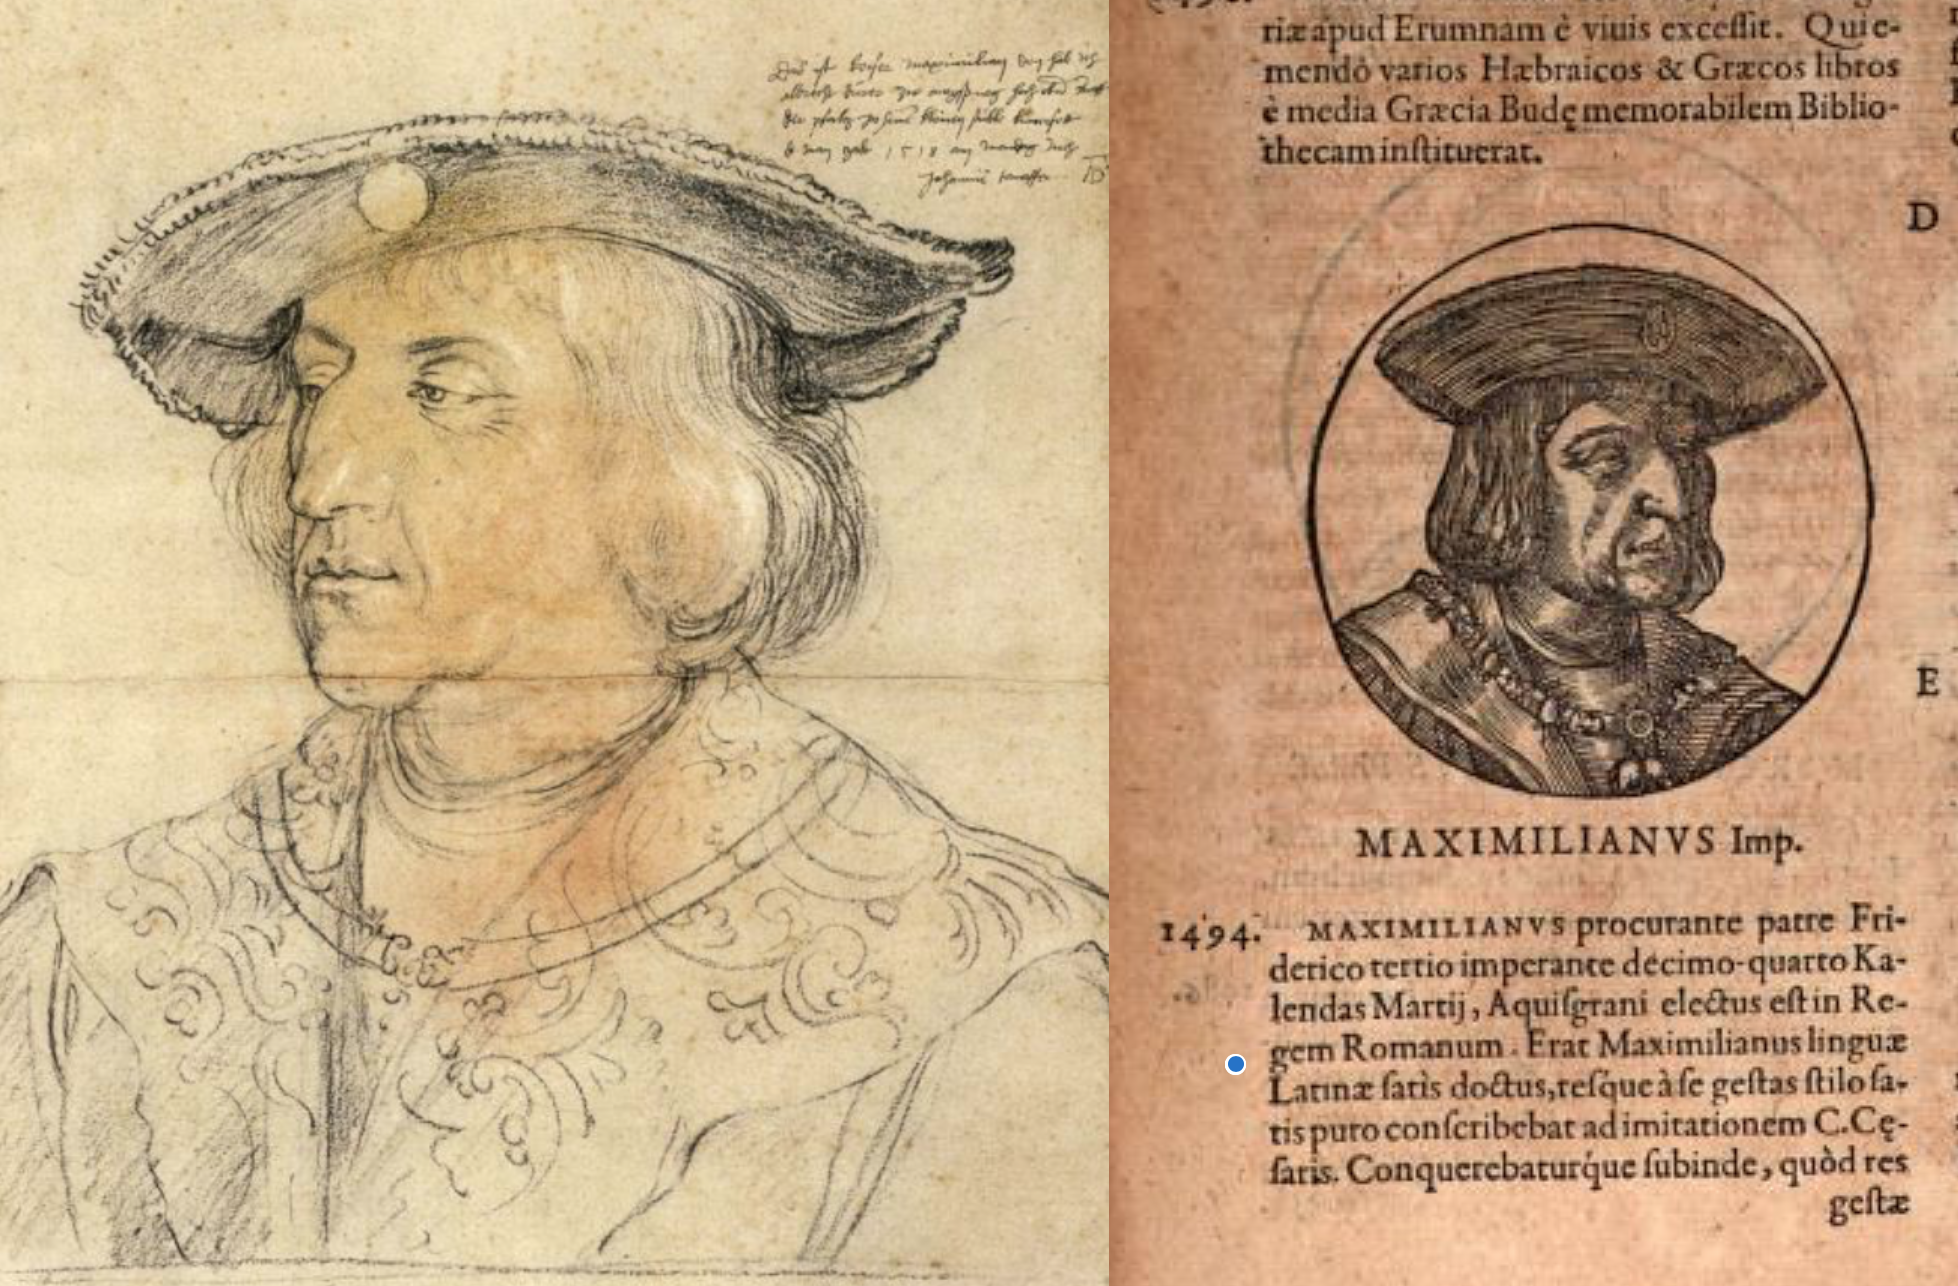 Das ist keiser maximilian den hab ich
albrecht dürer zw awgspurg hoch obn awff
der pfaltz kleinen kunterfet
man 1518 am mandag noch
Johannis
riæ apud Erumnam è viuis exceſſit. Quie-
mendò varios Hæbraicos & Græcos libros
è media Græcia Budę memorabilem Biblio-
thecam inſtituerat.
D
E
MAXIMILIANVS Imp.
1494. MAXIMILIANVS procurante patre Fri-
derico tertio imperante decimo-quarto Ka-
lendas Martij, Aquiſgrani electus eſt in Re-
gem Romanum. Erat Maximilianus linguæ
Latinæ ſatis doctus, reſque à ſe geſtas ſtilo ſa-
tis puro conſcribebat ad imitationem C. Cę-
ſaris. Conquerebaturq́ue ſubinde, quòd res
geſtæ